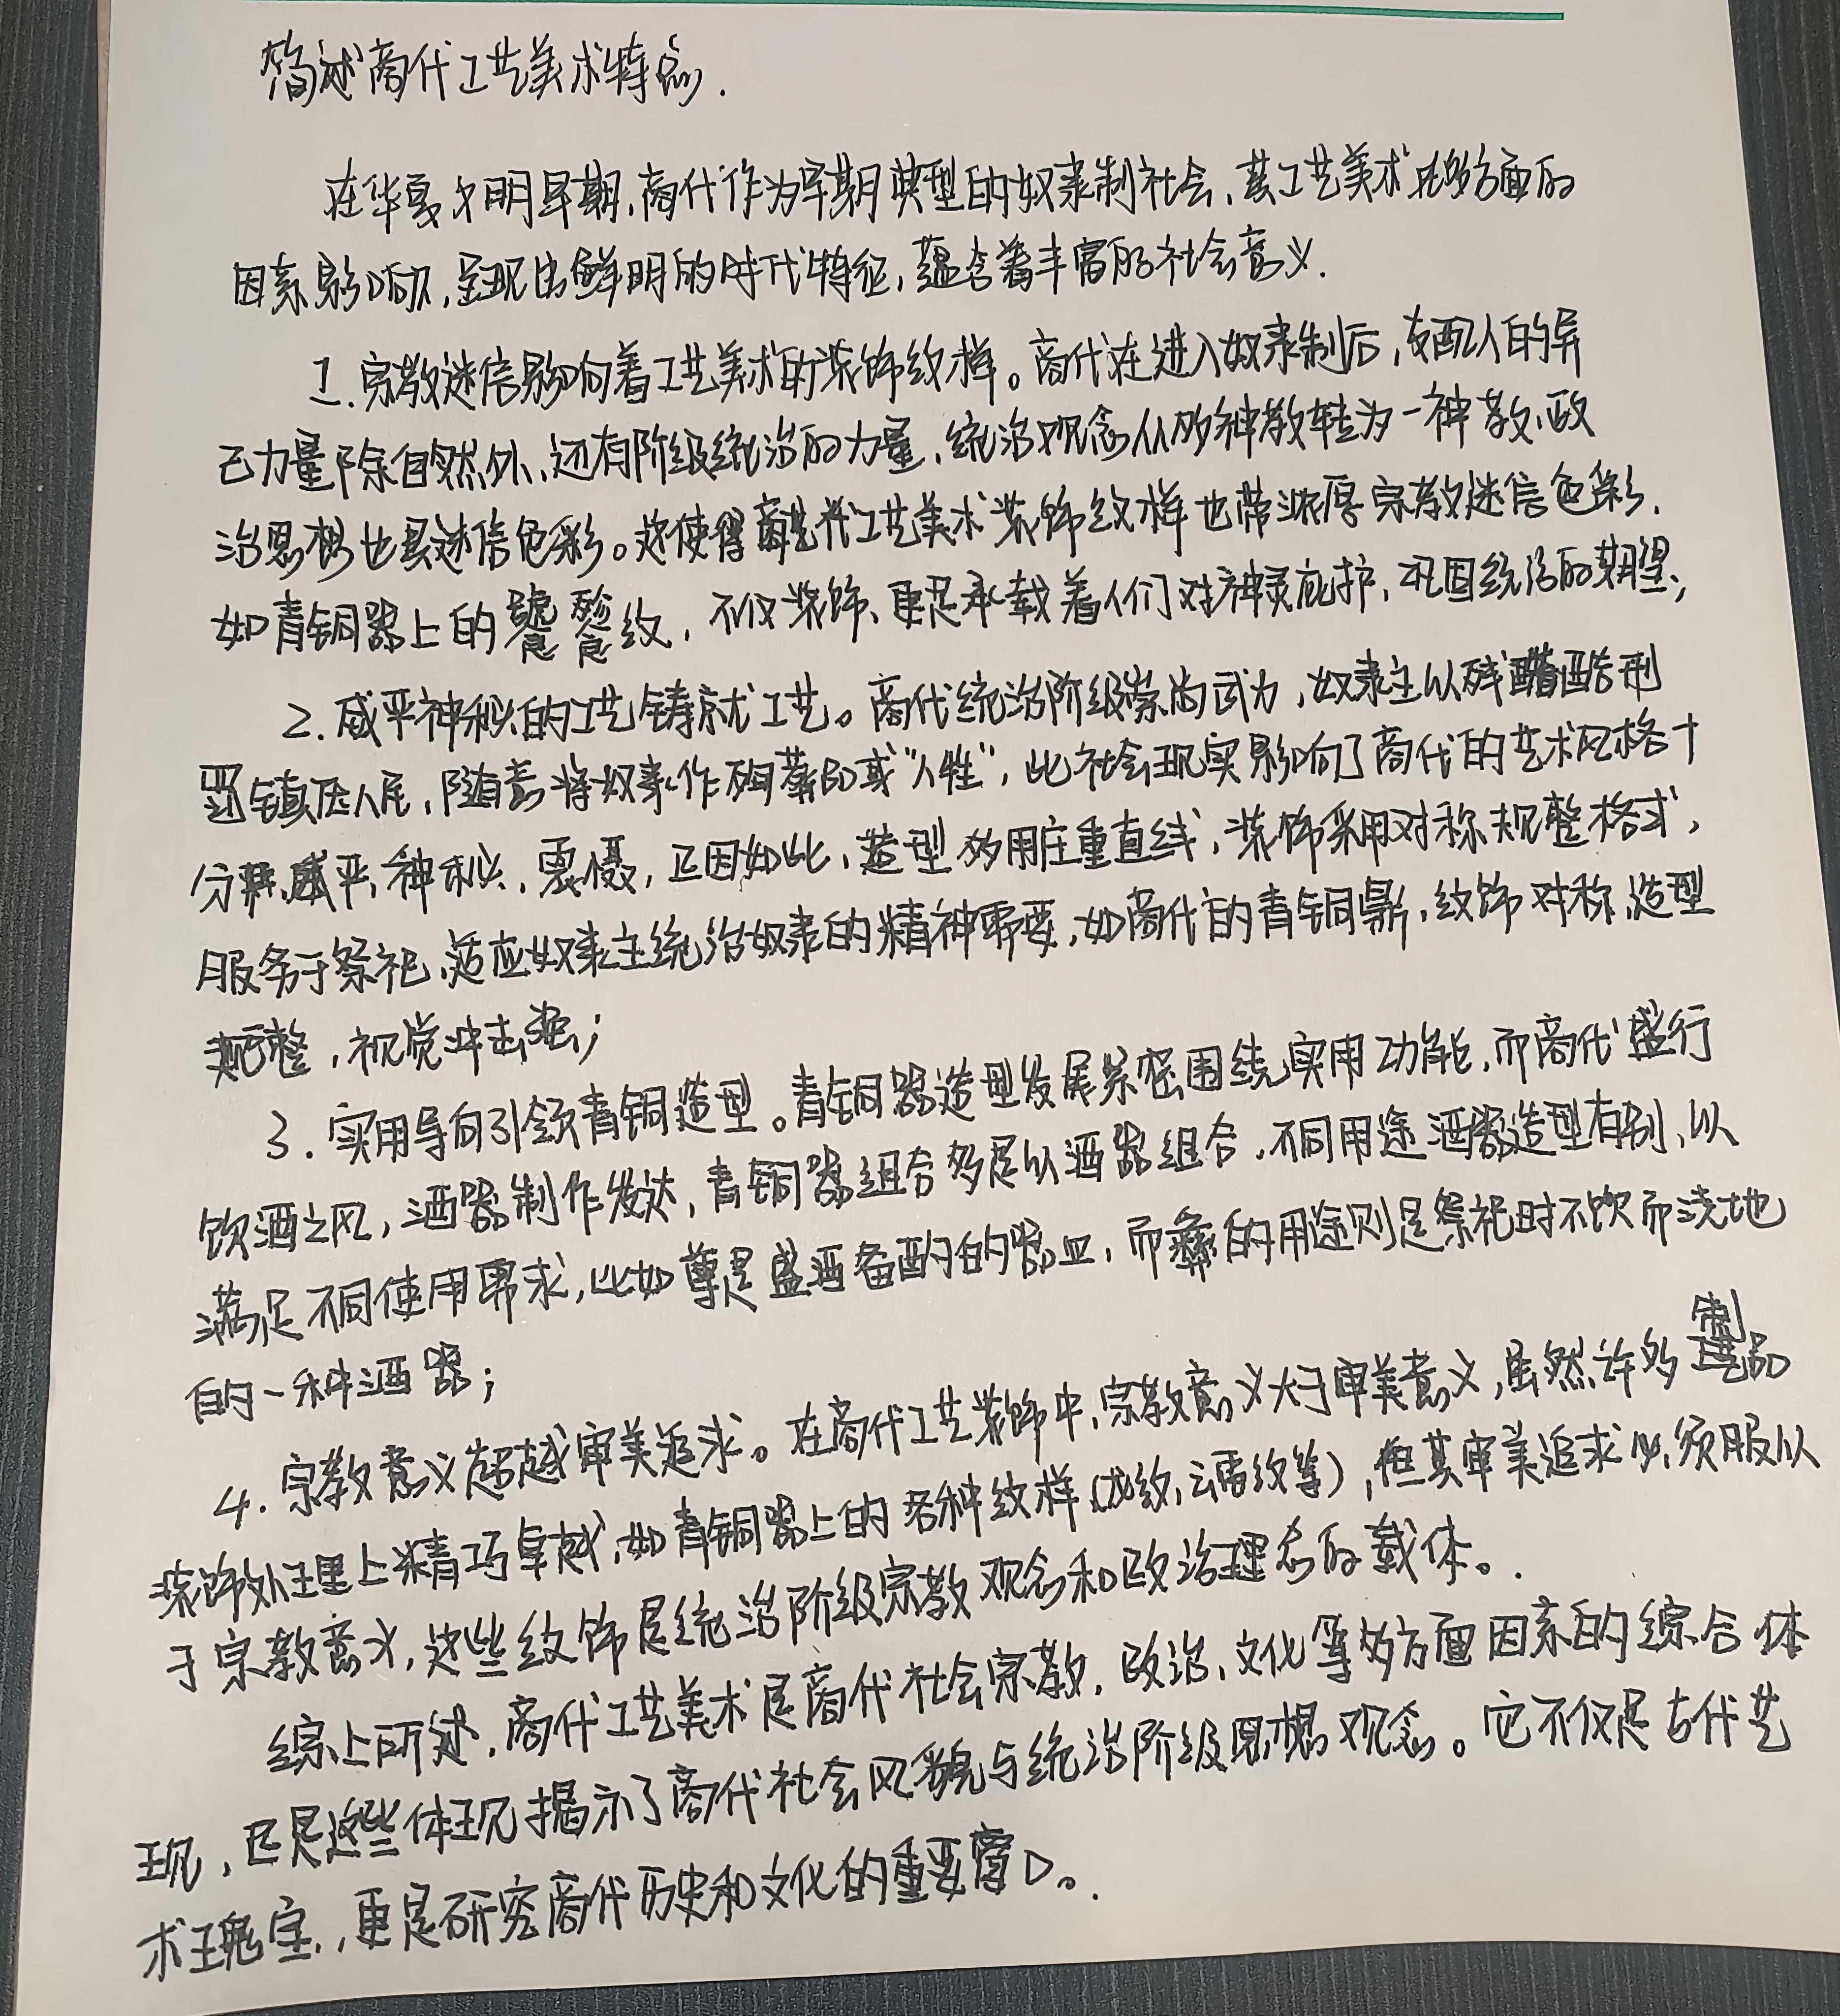 简述商代工艺美术特点.
在华夏文明早期,商代作为早期典型的奴隶制社会,其工艺美术在多方面的
因素影响下,呈现出鲜明的时代特征,蕴含着丰富的社会意义.
1.宗教迷信影响着工艺美术的装饰纹样。商代在进入奴隶制后,支配人的异
己力量除自然外,还有阶级统治的力量,统治观念从多神教转为一神教,政
治思想也具迷信色彩。这使得商代工艺美术装饰纹样也带浓厚宗教迷信色彩.
如青铜器上的饕餮纹,不仅装饰、更是承载着人们对神灵庇护、巩固统治的期望;
2.威严神秘的工艺铸就工艺。商代统治阶级崇尚武力,奴隶主以残酷刑
罚镇压人民,随意将奴隶作殉葬品或“人牲”,此社会现实影响了商代的艺术风格十
分威严,神秘,震慑,正因如此,造型多用庄重直线,装饰采用对称规整格式,
服务于祭祀,适应奴隶主统治奴隶的精神需要,如商代的青铜鼎,纹饰对称,造型
规整,视觉冲击强;
3.实用导向引领青铜造型。青铜器造型发展紧密围绕实用功能,而商代盛行
饮酒之风,酒器制作发达,青铜器组合多是以酒器组合,不同用途酒器造型有别、以
满足不同使用需求,比如尊是盛酒备酌的器皿,而彝的用途则是祭祀时不饮而浇地
的一种酒器;
4.宗教意义超越审美追求。在商代工艺装饰中,宗教意义大于审美意义,虽然许多制品
装饰处理上精巧卓越,如青铜器上的各种纹样(龙纹,云雷纹等),但其审美追求必须服从
于宗教意义,这些纹饰是统治阶级宗教观念和政治理念的载体。
综上所述,商代工艺美术是商代社会宗教,政治,文化等多方面因素的综合体
现,正是这些体现揭示了商代社会风貌与统治阶级思想观念。它不仅是古代艺
术瑰宝,更是研究商代历史和文化的重要窗口。